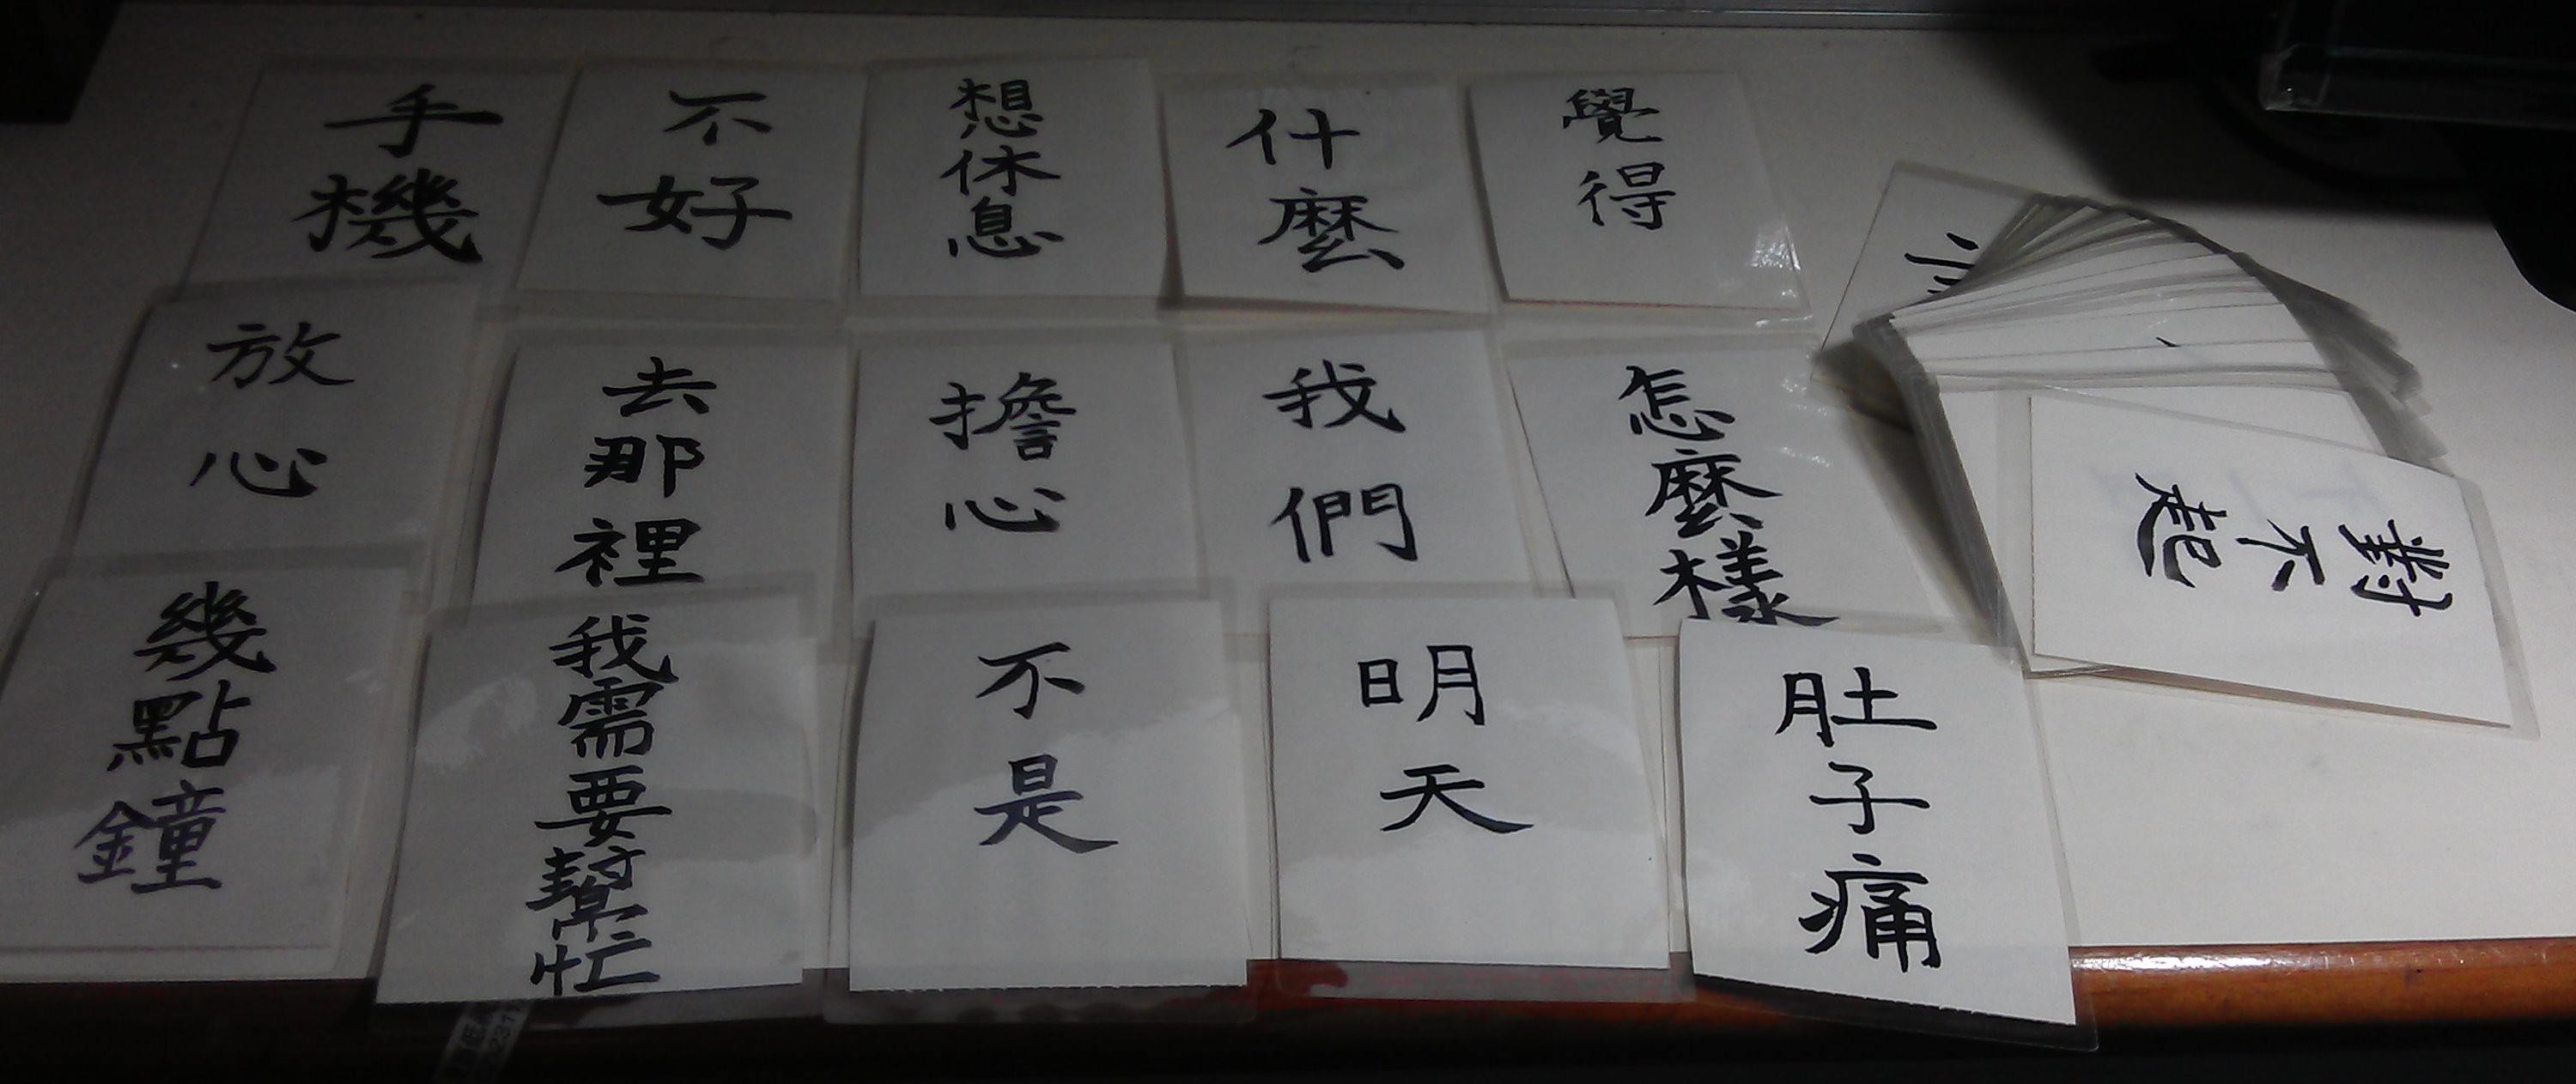 手機
不好
想休息
什麼
覺得
放心
去那裡
擔心
我們
怎麼樣
對不起
幾點鐘
我需要幫忙
不是
明天
肚子痛